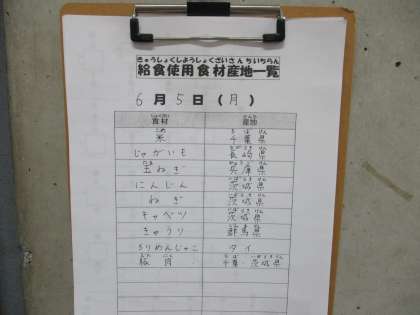 きゅうしょくしようしょくざいさんちいちらん
給食使用食材産地一覧
6月5日(月)
食材 産地
米 千葉県
じゃがいも 長崎県
玉ねぎ 兵庫県
にんじん 茨城県
ねぎ 茨城県
キャベツ 茨城県
きゅうり 群馬県
ちりめんじゃこ タイ
豚肉 千葉・茨城県